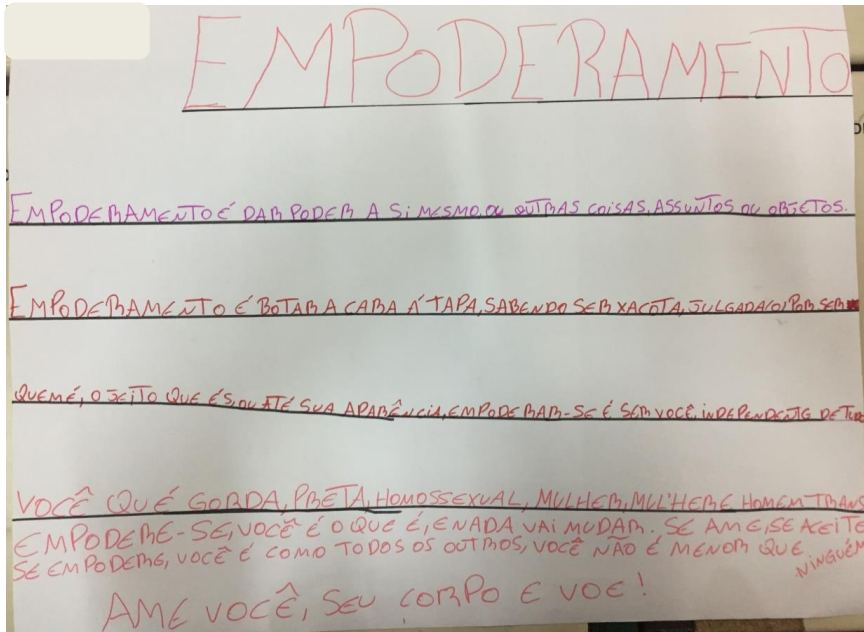 EMPODERAMENTO
EMPODERAMENTO É DAR PODER A SI MESMO, OU OUTRAS COISAS, ASSUNTOS OU OBJETOS.
EMPODERAMENTO É BOTAR A CARA Á TAPA, SABENDO SER XACOTA, JULGADA(O) POR SER
QUEM É, O JEITO QUE ÉS, OU ATÉ SUA APARÊNCIA, EMPODERAR-SE É SER VOCÊ, INDEPENDENTE DE TUDO
VOCÊ QUÉ GORDA, PRETA, HOMOSSEXUAL, MULHER, MULHER E HOMEM TRANS
EMPODERE-SE, VOCÊ É O QUE É, E NADA VAI MUDAR. SE AME, SE ACEITE
SE EMPODERE, VOCÊ É COMO TODOS OS OUTROS, VOCÊ NÃO É MENOR QUE
NINGUÉM
AME VOCÊ, SEU CORPO E VOE!